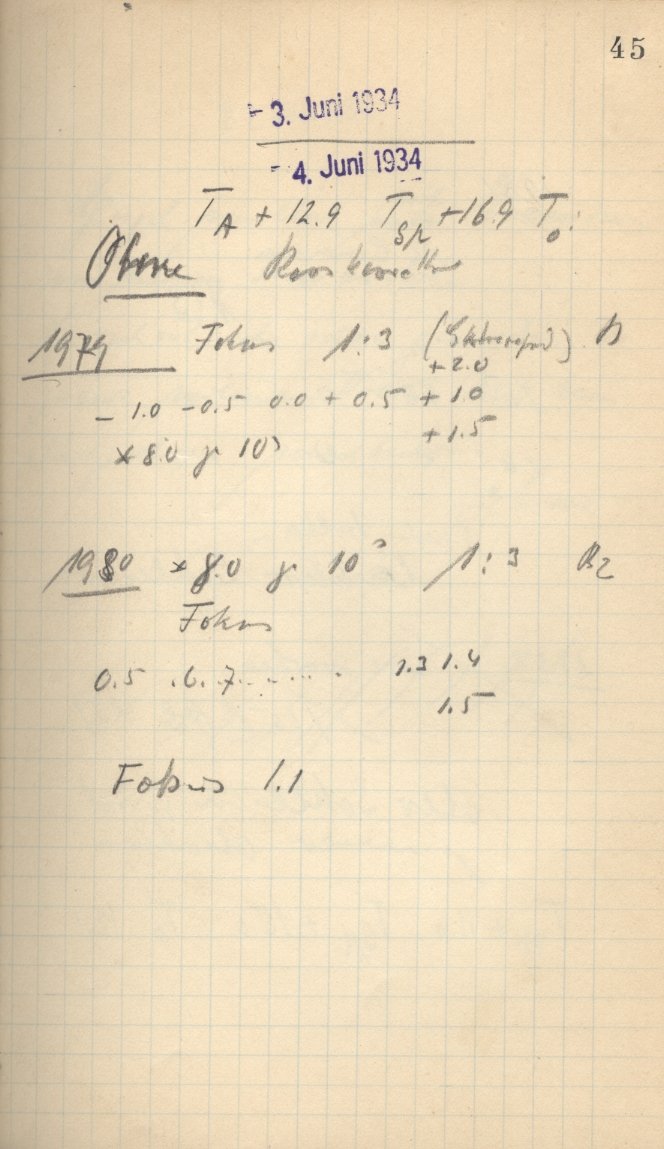 45
- 3. Juni 1934
- 4. Juni 1934
T_A + 12.9 T_Sp + 16.9 T_o:
Obere
1979 Fokus 1:3
+ 2.0
- 1.0 - 0.5 0.0 + 0.5 + 1.0
+ 1.5
* 8.0 gr 10^s
1980 * 8.0 gr 10^s 1:3 B2
Fokus
0.5 .6.7........ 1.3 1.4
1.5
Fokus 1.1